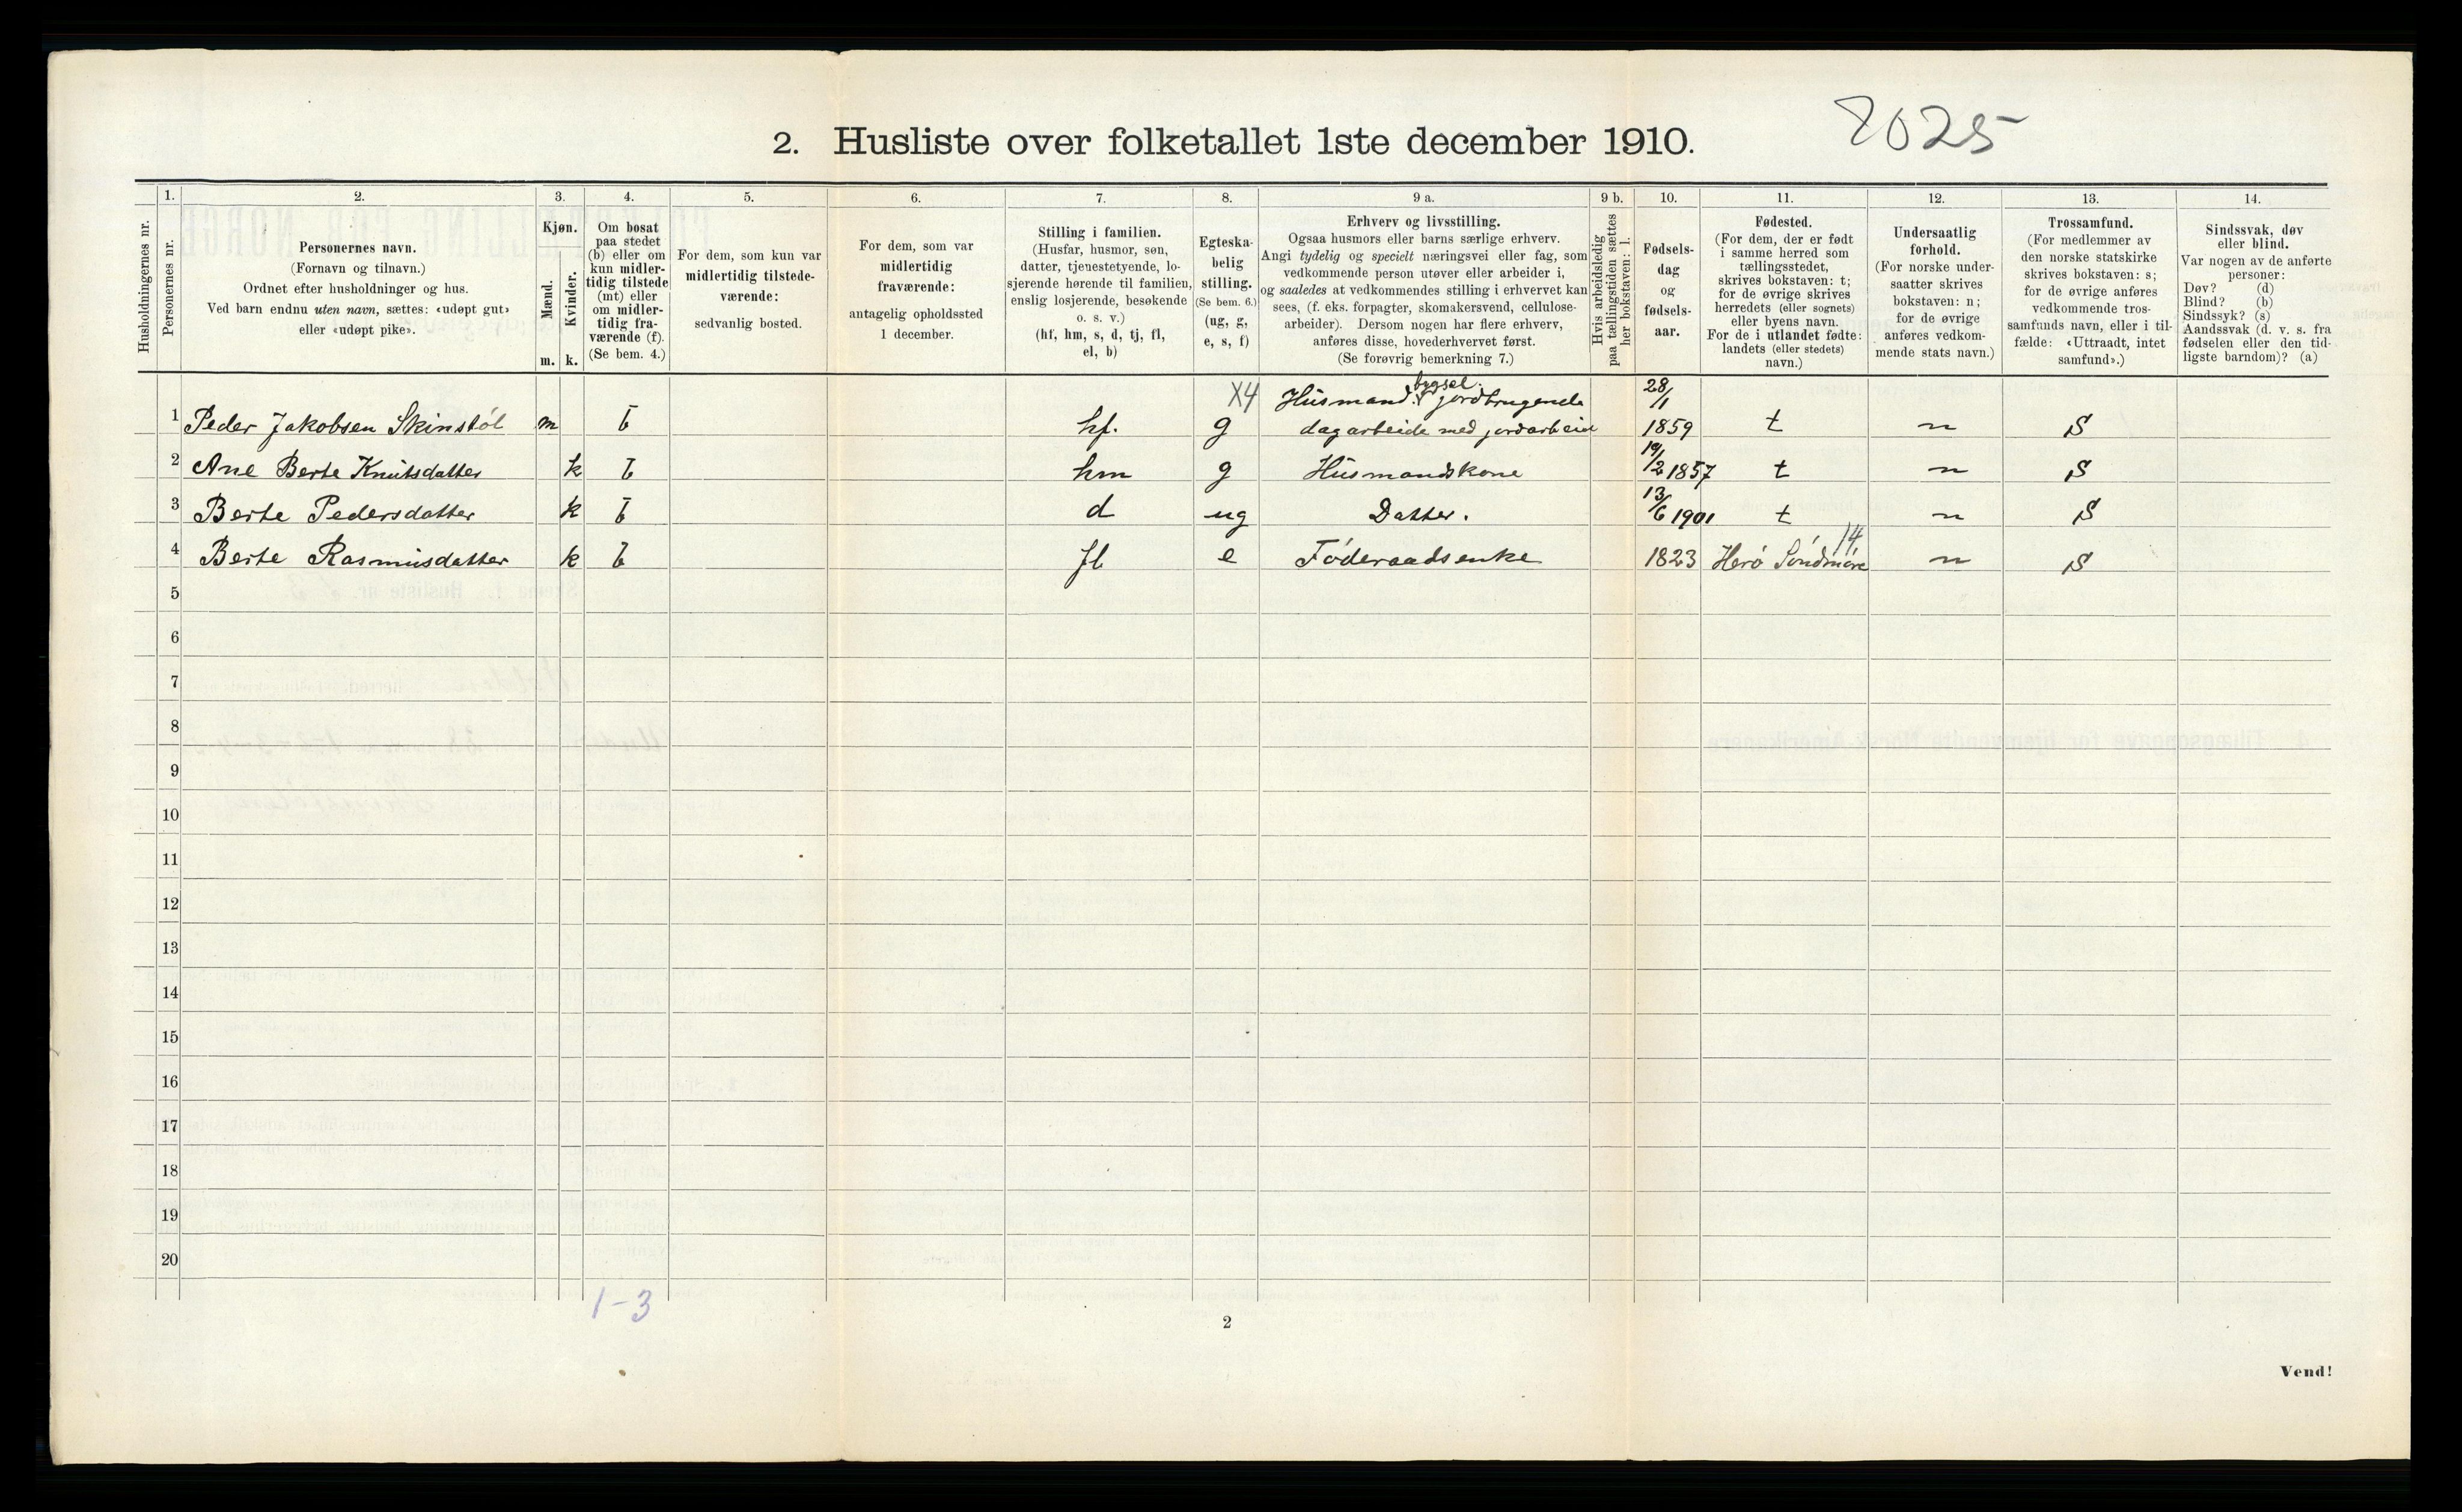 2. Husliste over folketallet 1ste december 1910.
8025
Husholdningernes nr.
1.
Personernes nr.
2.
Personernes navn.
(Fornavn og tilnavn.)
Ordnet efter husholdninger og hus.
Ved barn endnu uten navn, sættes: «udøpt gut»
eller «udøpt pike».
3.
Kjøn.
Mænd.
Kvinder.
m. k.
4.
Om bosat
paa stedet
(b) eller om
kun midler-
tidig tilstede
(mt) eller
om midler-
tidig fra-
værende (f).
(Se bem. 4.)
5.
For dem, som kun var
midlertidig tilstede-
værende:
sedvanlig bosted.
6.
For dem, som var
midlertidig
fraværende:
antagelig opholdssted
1 december.
7.
Stilling i familien.
(Husfar, husmor, søn,
datter, tjenestetyende, lo-
sjerende hørende til familien,
enslig losjerende, besøkende
o. s. v.)
(hf, hm, s, d, tj, fl,
el, b)
8.
Egteska-
belig
stilling.
(Se bem. 6.)
(ug, g,
e, s, f)
9 a.
Erhverv og livsstilling.
Ogsaa husmors eller barns særlige erhverv.
Angi tydelig og specielt næringsvei eller fag, som
vedkommende person utøver eller arbeider i,
og saaledes at vedkommendes stilling i erhvervet kan
sees, (f. eks. forpagter, skomakersvend, cellulose-
arbeider). Dersom nogen har flere erhverv,
anføres disse, hovederhvervet først.
(Se forøvrig bemerkning 7.)
9 b.
Hvis arbeidsledig
paa tællingstiden sættes
her bokstaven: l.
10.
Fødsels-
dag
og
fødsels-
aar.
11.
Fødested.
(For dem, der er født
i samme herred som
tællingsstedet,
skrives bokstaven: t;
for de øvrige skrives
herredets (eller sognets)
eller byens navn.
For de i utlandet fødte:
landets (eller stedets)
navn.)
12.
Undersaatlig
forhold.
(For norske under-
saatter skrives
bokstaven: n;
for de øvrige
anføres vedkom-
mende stats navn.)
13.
Trossamfund.
(For medlemmer av
den norske statskirke
skrives bokstaven: s;
for de øvrige anføres
vedkommende tros-
samfunds navn, eller i til-
fælde: «Uttraadt, intet
samfund».)
14.
Sindssvak, døv
eller blind.
Var nogen av de anførte
personer:
Døv? (d)
Blind? (b)
Sindssyk? (s)
Aandssvak (d. v. s. fra
fødselen eller den tid-
ligste barndom)? (a)
X4 bygsel. 28/1
Husmand. jordbrugende
1 Peder Jakobsen Skinstöl m b hf. g dagarbeide med jordarbeid 1859 t n S
2 Ane Berte Knutsdatter k b hm g Husmandskone 1857 t n S
3 Berte Pedersdatter k b d ug Datter. 13/6 1901 t n S
14
4 Berte Rasmusdatter k b fl e Föderaadsenke 1823 Herö Söndmöre n S
5
6
7
8
9
10
11
12
13
14
15
16
17
18
19
20
1-3
2
Vend!